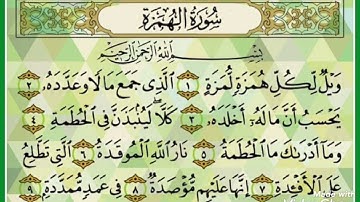 سُورَةُ الْهُمَزَةِ
بِسْمِ اللَّهِ الرَّحْمَنِ الرَّحِيمِ
وَيْلٌ لِكُلِّ هُمَزَةٍ لُمَزَةٍ ١ الَّذِي جَمَعَ مَالًا وَعَدَّدَهُ ٢
يَحْسَبُ أَنَّ مَالَهُ أَخْلَدَهُ ٣ كَلَّا لَيُنْبَذَنَّ فِي الْحُطَمَةِ ٤
وَمَا أَدْرَىٰكَ مَا الْحُطَمَةُ ٥ نَارُ اللَّهِ الْمُوقَدَةُ ٦ الَّتِي تَطَّلِعُ
عَلَى الْأَفْئِدَةِ ٧ إِنَّهَا عَلَيْهِمْ مُؤْصَدَةٌ ٨ فِي عَمَدٍ مُمَدَّدَةٍ ٩
Made with